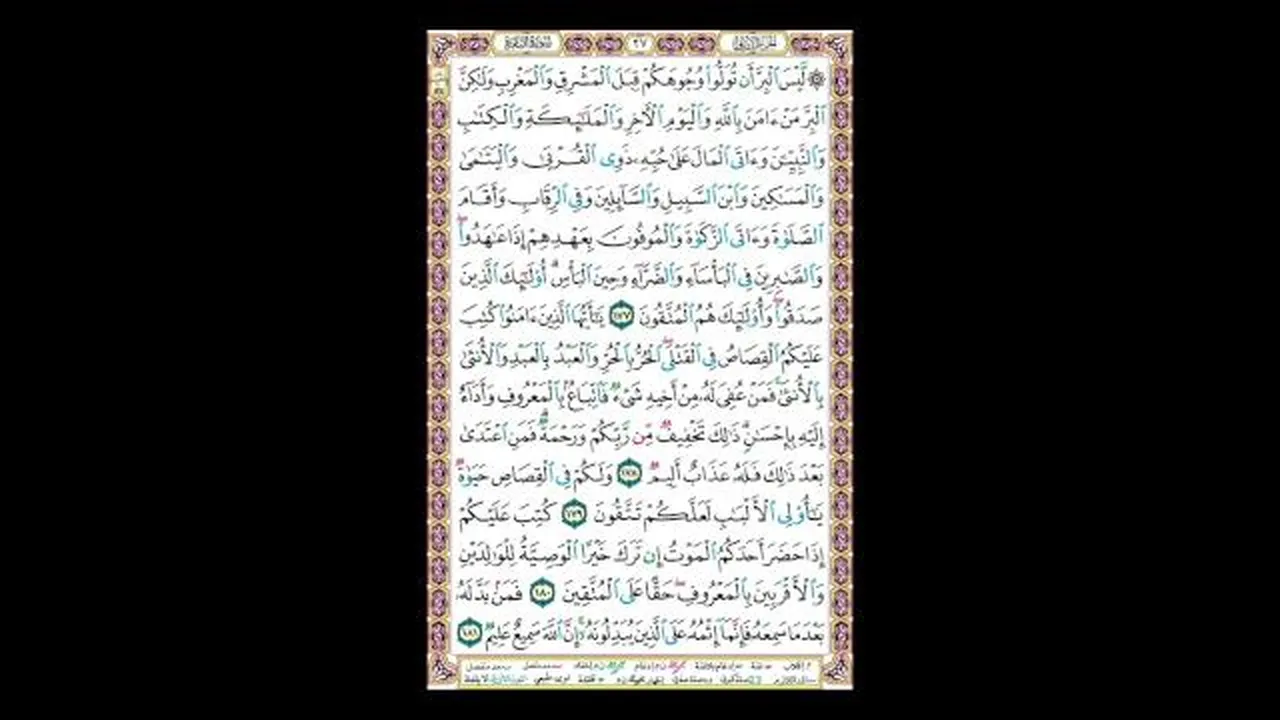 سورة البقرة ٢٧ الجزء الثاني
۞ لَّيْسَ ٱلْبِرَّ أَن تُوَلُّوا۟ وُجُوهَكُمْ قِبَلَ ٱلْمَشْرِقِ وَٱلْمَغْرِبِ وَلَٰكِنَّ
ٱلْبِرَّ مَنْ ءَامَنَ بِٱللَّهِ وَٱلْيَوْمِ ٱلْءَاخِرِ وَٱلْمَلَٰٓئِكَةِ وَٱلْكِتَٰبِ
وَٱلنَّبِيِّۦنَ وَءَاتَى ٱلْمَالَ عَلَىٰ حُبِّهِۦ ذَوِى ٱلْقُرْبَىٰ وَٱلْيَتَٰمَىٰ
وَٱلْمَسَٰكِينَ وَٱبْنَ ٱلسَّبِيلِ وَٱلسَّآئِلِينَ وَفِى ٱلرِّقَابِ وَأَقَامَ
ٱلصَّلَوٰةَ وَءَاتَى ٱلزَّكَوٰةَ وَٱلْمُوفُونَ بِعَهْدِهِمْ إِذَا عَٰهَدُوا۟ ۖ
وَٱلصَّٰبِرِينَ فِى ٱلْبَأْسَآءِ وَٱلضَّرَّآءِ وَحِينَ ٱلْبَأْسِ ۗ أُو۟لَٰٓئِكَ ٱلَّذِينَ
صَدَقُوا۟ ۖ وَأُو۟لَٰٓئِكَ هُمُ ٱلْمُتَّقُونَ ١٧٧ يَٰٓأَيُّهَا ٱلَّذِينَ ءَامَنُوا۟ كُتِبَ
عَلَيْكُمُ ٱلْقِصَاصُ فِى ٱلْقَتْلَى ۖ ٱلْحُرُّ بِٱلْحُرِّ وَٱلْعَبْدُ بِٱلْعَبْدِ وَٱلْأُنثَىٰ
بِٱلْأُنثَىٰ ۚ فَمَنْ عُفِىَ لَهُۥ مِنْ أَخِيهِ شَىْءٌ فَٱتِّبَاعٌۢ بِٱلْمَعْرُوفِ وَأَدَآءٌ
إِلَيْهِ بِإِحْسَٰنٍ ۗ ذَٰلِكَ تَخْفِيفٌ مِّن رَّبِّكُمْ وَرَحْمَةٌ ۗ فَمَنِ ٱعْتَدَىٰ
بَعْدَ ذَٰلِكَ فَلَهُۥ عَذَابٌ أَلِيمٌ ١٧٨ وَلَكُمْ فِى ٱلْقِصَاصِ حَيَوٰةٌ
يَٰٓأُو۟لِى ٱلْأَلْبَٰبِ لَعَلَّكُمْ تَتَّقُونَ ١٧٩ كُتِبَ عَلَيْكُمْ
إِذَا حَضَرَ أَحَدَكُمُ ٱلْمَوْتُ إِن تَرَكَ خَيْرًا ٱلْوَصِيَّةُ لِلْوَٰلِدَيْنِ
وَٱلْأَقْرَبِينَ بِٱلْمَعْرُوفِ ۖ حَقًّا عَلَى ٱلْمُتَّقِينَ ١٨٠ فَمَنۢ بَدَّلَهُۥ
بَعْدَ مَا سَمِعَهُۥ فَإِنَّمَآ إِثْمُهُۥ عَلَى ٱلَّذِينَ يُبَدِّلُونَهُۥٓ ۚ إِنَّ ٱللَّهَ سَمِيعٌ عَلِيمٌ ١٨١